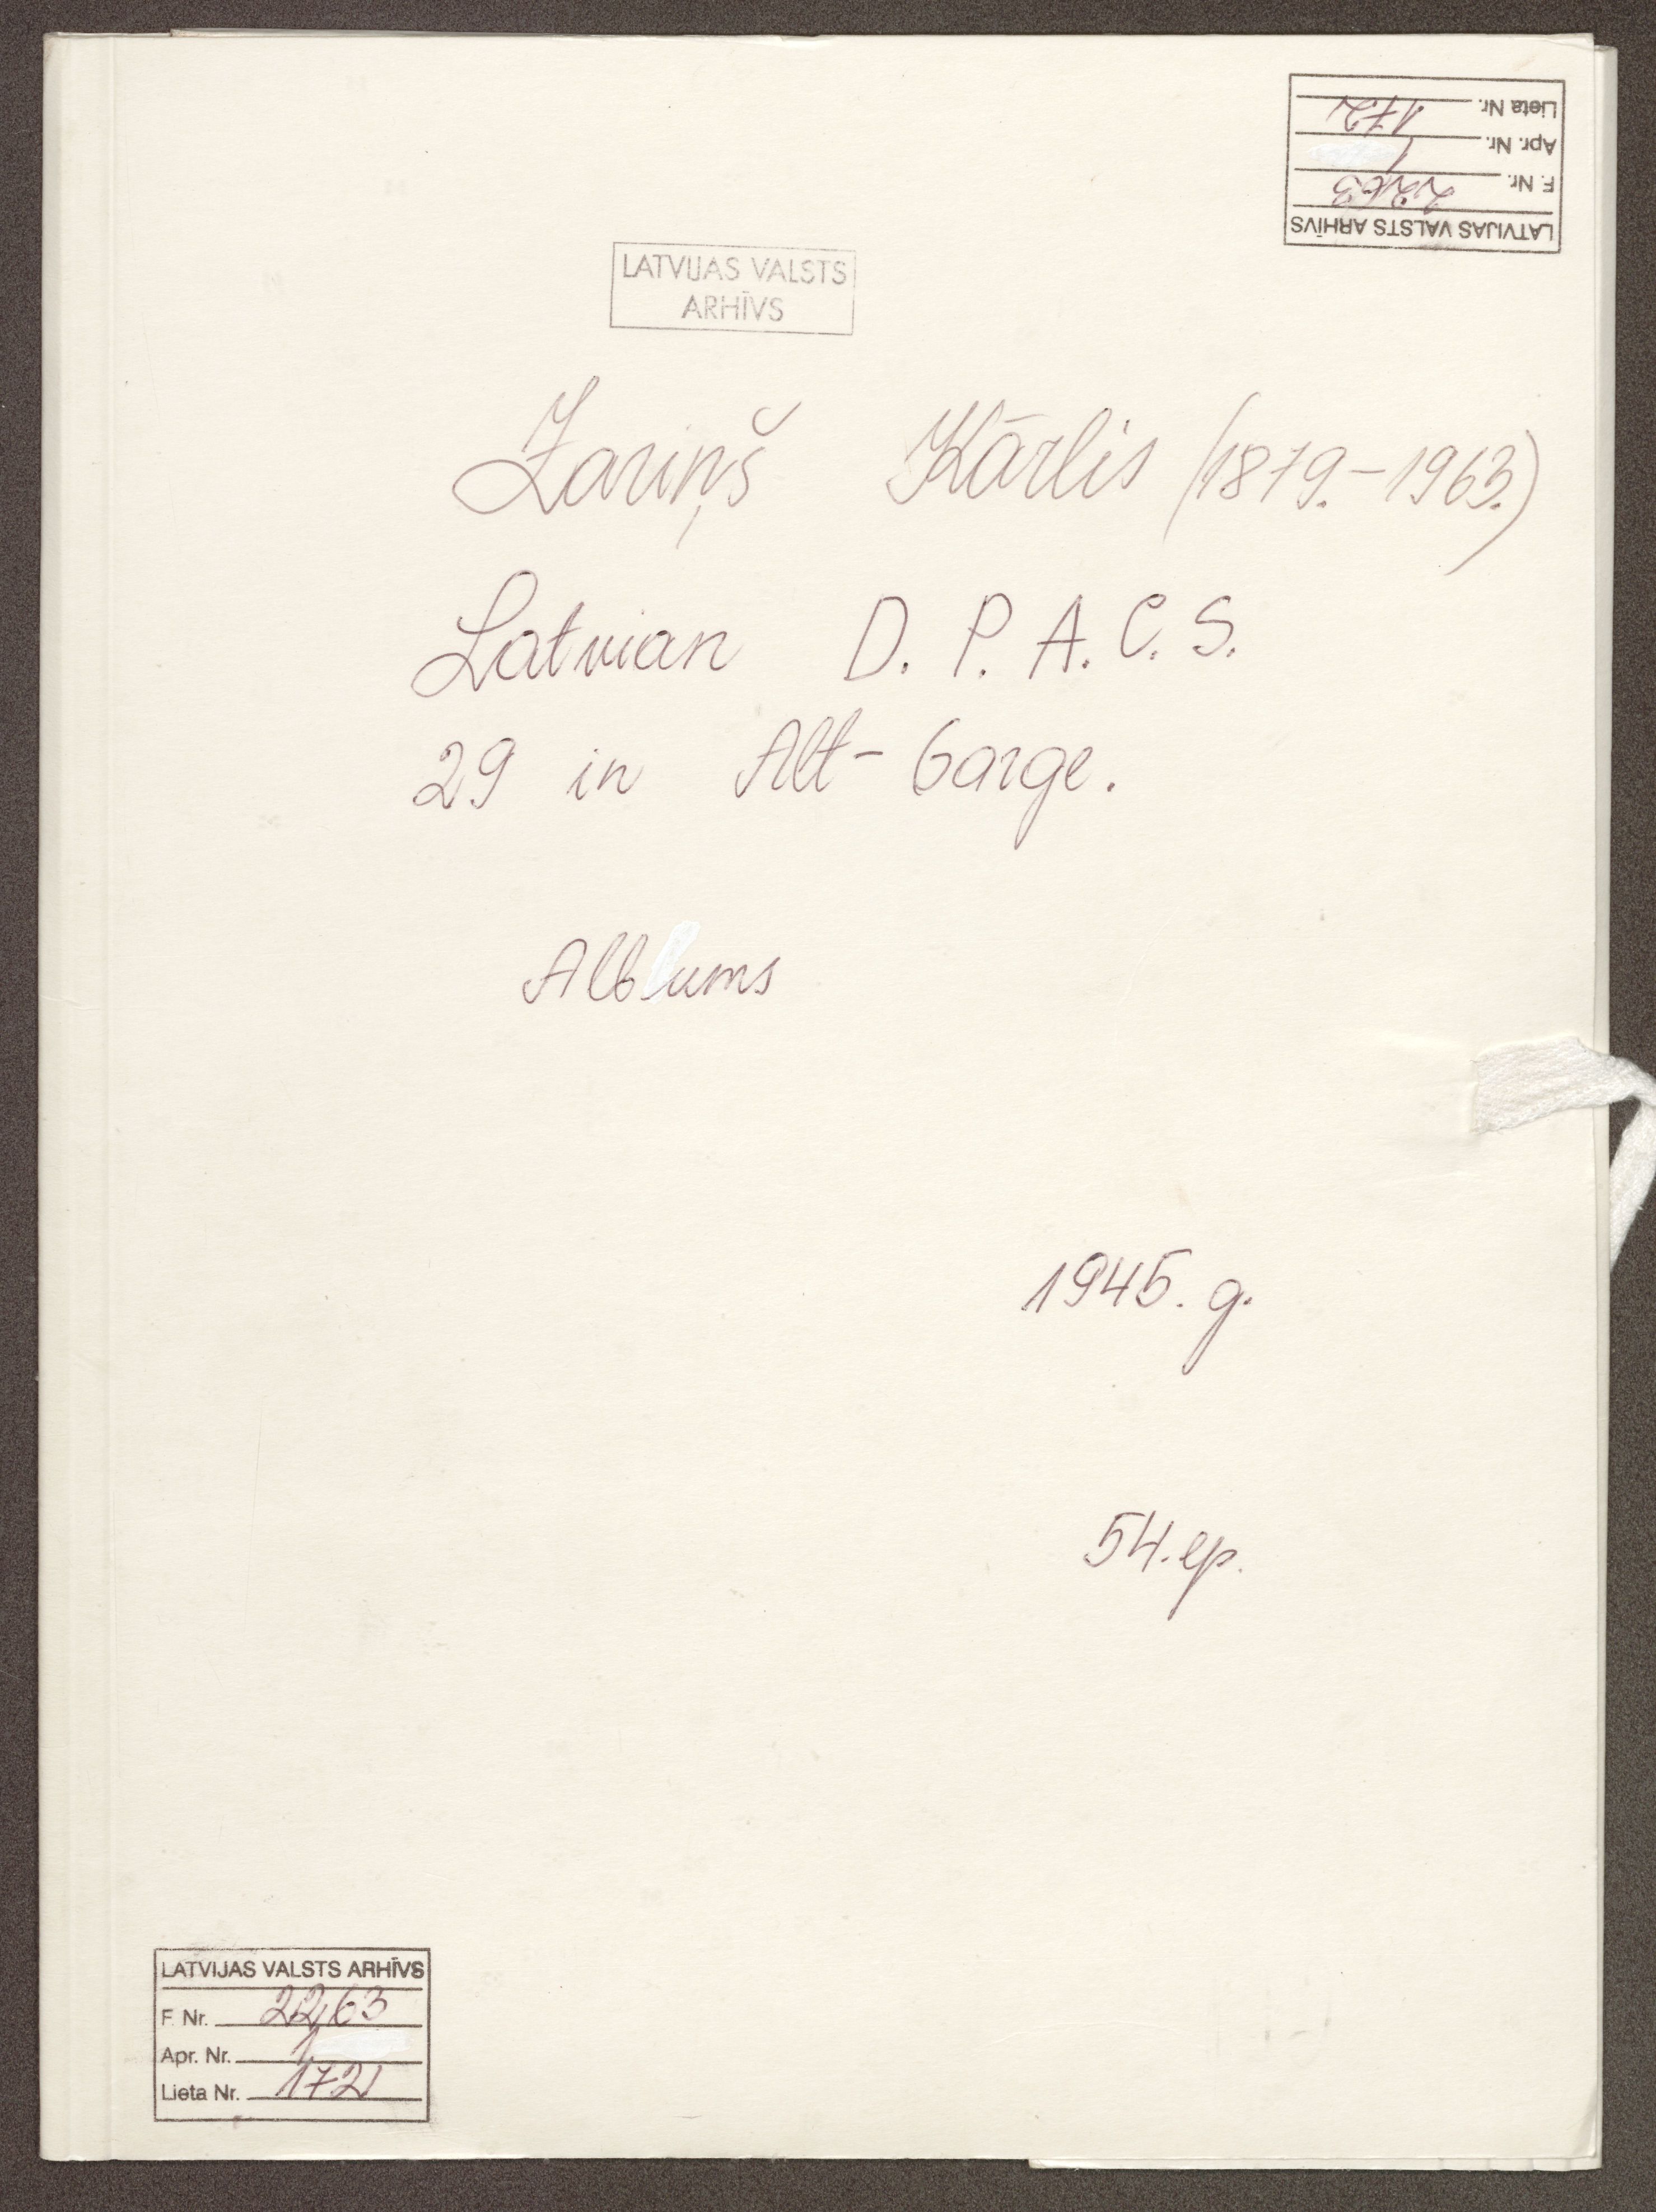 LATVIJAS VALSTS ARHĪVS
F. Nr. 2263
Apr. Nr. 1
Lieta Nr. 172
LATVIJAS VALSTS
ARHĪVS
Zariņš Kārlis (1879.-1963.)
Latvian D. P. A. C. S.
29 in Alt-Garge.
Albums
1945. g.
54. lp.
LATVIJAS VALSTS ARHĪVS
F. Nr. 2263
Apr. Nr. 1
Lieta Nr. 172